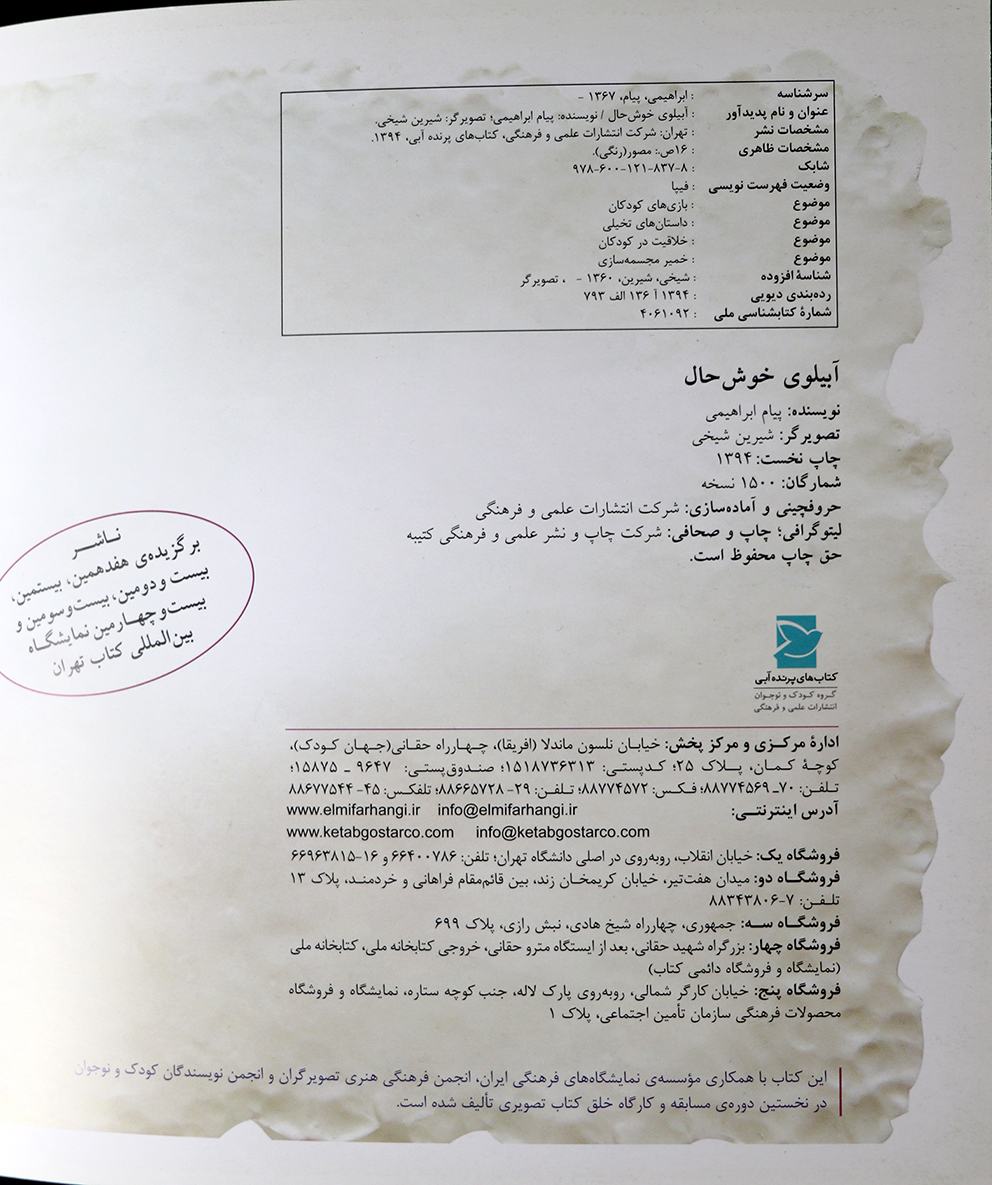 سرشناسه : ابراهیمی، پیام، ۱۳۶۷ -
عنوان و نام پدیدآور : آبیلوی خوش‌حال / نویسنده: پیام ابراهیمی؛ تصویرگر: شیرین شیخی.
مشخصات نشر : تهران: شرکت انتشارات علمی و فرهنگی، کتاب‌های پرنده آبی، ۱۳۹۴.
مشخصات ظاهری : ۱۶ص.: مصور(رنگی).
شابک : ۹۷۸-۶۰۰-۱۲۱-۸۳۷-۸
وضعیت فهرست نویسی : فیپا
موضوع : بازی‌های کودکان
موضوع : داستان‌های تخیلی
موضوع : خلاقیت در کودکان
موضوع : خمیر مجسمه‌سازی
شناسهٔ افزوده : شیخی، شیرین، ۱۳۶۰ - ، تصویرگر
رده‌بندی دیویی : ۱۳۹۴ آ ۱۳۶ الف ۷۹۳
شمارهٔ کتابشناسی ملی : ۴۰۶۱۰۹۲
آبیلوی خوش‌حال
نویسنده: پیام ابراهیمی
تصویرگر: شیرین شیخی
چاپ نخست: ۱۳۹۴
شمارگان: ۱۵۰۰ نسخه
حروفچینی و آماده‌سازی: شرکت انتشارات علمی و فرهنگی
لیتوگرافی؛ چاپ و صحافی: شرکت چاپ و نشر علمی و فرهنگی کتیبه
حق چاپ محفوظ است.
ناشر
برگزیده‌ی هفدهمین، بیستمین،
بیست و دومین، بیست‌وسومین و
بیست‌و‌چهارمین نمایشگاه
بین‌المللی کتاب تهران
کتاب‌های پرنده آبی
گروه کودک و نوجوان
انتشارات علمی و فرهنگی
ادارهٔ مرکزی و مرکز پخش: خیابان نلسون ماندلا (افریقا)، چهارراه حقانی(جهان کودک)،
کوچهٔ کمان، پلاک ۲۵؛ کدپستی: ۱۵۱۸۷۳۶۳۱۳؛ صندوق‌پستی: ۹۶۴۷ ـ ۱۵۸۷۵؛
تلفن: ۷۰ـ ۸۸۷۷۴۵۶۹؛ فکس: ۸۸۷۷۴۵۷۲؛ تلفن: ۲۹- ۸۸۶۶۵۷۲۸؛ تلفکس: ۴۵- ۸۸۶۷۷۵۴۴
آدرس اینترنتی: www.elmifarhangi.ir info@elmifarhangi.ir
www.ketabgostarco.com info@ketabgostarco.com
فروشگاه یک: خیابان انقلاب، روبه‌روی در اصلی دانشگاه تهران؛ تلفن: ۶۶۴۰۰۷۸۶ و ۱۶-۶۶۹۶۳۸۱۵
فروشگاه دو: میدان هفت‌تیر، خیابان کریمخان زند، بین قائم‌مقام فراهانی و خردمند، پلاک ۱۳
تلفن: ۷-۸۸۳۴۳۸۰۶
فروشگاه سه: جمهوری، چهارراه شیخ هادی، نبش رازی، پلاک ۶۹۹
فروشگاه چهار: بزرگراه شهید حقانی، بعد از ایستگاه مترو حقانی، خروجی کتابخانه ملی، کتابخانه ملی
(نمایشگاه و فروشگاه دائمی کتاب)
فروشگاه پنج: خیابان کارگر شمالی، روبه‌روی پارک لاله، جنب کوچه ستاره، نمایشگاه و فروشگاه
محصولات فرهنگی سازمان تأمین اجتماعی، پلاک ۱
این کتاب با همکاری مؤسسه‌ی نمایشگاه‌های فرهنگی ایران، انجمن فرهنگی هنری تصویرگران و انجمن نویسندگان کودک و نوجوان
در نخستین دوره‌ی مسابقه و کارگاه خلق کتاب تصویری تألیف شده است.